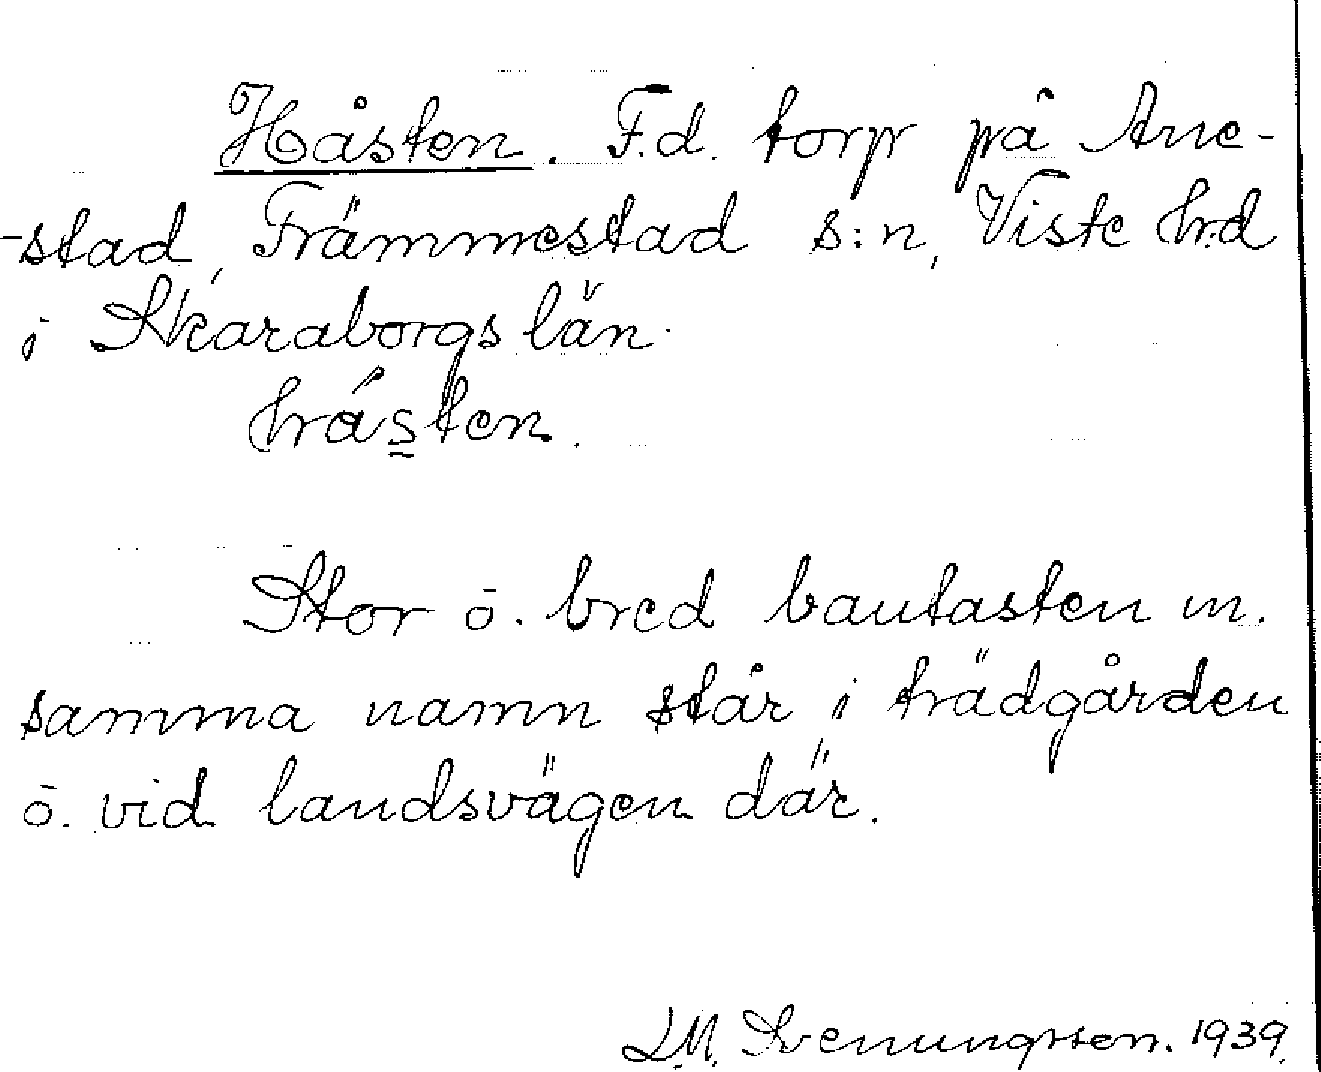 Håsten. F.d. torp på Ane-
-stad, Främmestad s:n, Viste h:d
i Skaraborgs län.
håsten.
Stor o. bred bautasten m.
samma namn står i trädgården
o. vid landsvägen där.
L.M. Svenungsson. 1939.